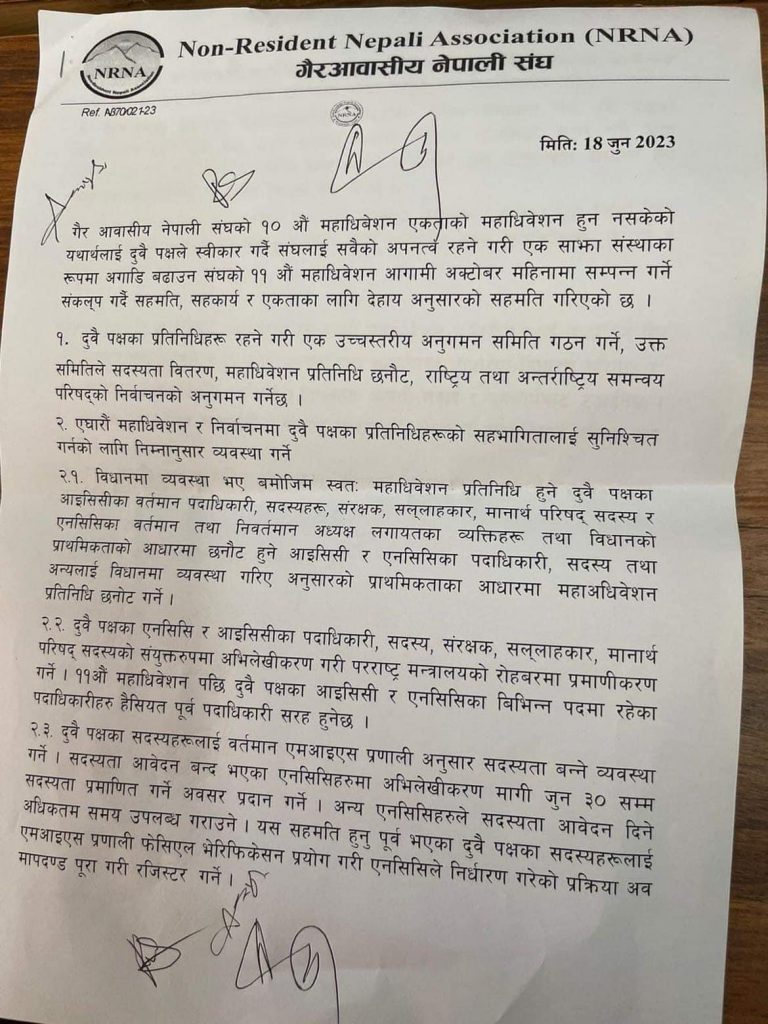 Non-Resident Nepali Association (NRNA)
गैरआवासीय नेपाली संघ
NRNA
Ref. AB70/021-23
NRNA
मिति: 18 जुन 2023
गैर आवासीय नेपाली संघको १० औं महाधिबेशन एकताको महाधिवेशन हुन नसकेको
यथार्थलाई दुवै पक्षले स्वीकार गर्दै संघलाई सवैको अपनत्व रहने गरी एक साझा संस्थाका
रूपमा अगाडि बढाउन संघको ११ औं महाधिवेशन आगामी अक्टोबर महिनामा सम्पन्न गर्ने
संकल्प गर्दै सहमति, सहकार्य र एकताका लागि देहाय अनुसारको सहमति गरिएको छ ।
१. दुवै पक्षका प्रतिनिधिहरू रहने गरी एक उच्चस्तरीय अनुगमन समिति गठन गर्ने, उक्त
समितिले सदस्यता वितरण, महाधिवेशन प्रतिनिधि छनौट, राष्ट्रिय तथा अन्तर्राष्ट्रिय समन्वय
परिषद्को निर्वाचनको अनुगमन गर्नेछ ।
२. एघारौं महाधिवेशन र निर्वाचनमा दुवै पक्षका प्रतिनिधिहरूको सहभागितालाई सुनिश्चित
गर्नको लागि निम्नानुसार व्यवस्था गर्ने
२.१. विधानमा व्यवस्था भए बमोजिम स्वत: महाधिवेशन प्रतिनिधि हुने दुवै पक्षका
आइसिसीका वर्तमान पदाधिकारी, सदस्यहरू, संरक्षक, सल्लाहकार, मानार्थ परिषद् सदस्य र
एनसिसिका वर्तमान तथा निवर्तमान अध्यक्ष लगायतका व्यक्तिहरू तथा विधानको
प्राथमिकताको आधारमा छनौट हुने आइसिसी र एनसिसिका पदाधिकारी, सदस्य तथा
अन्यलाई विधानमा व्यवस्था गरिए अनुसारको प्राथमिकताका आधारमा महाअधिवेशन
प्रतिनिधि छनोट गर्ने ।
२.२. दुवै पक्षका एनसिसि र आइसिसीका पदाधिकारी, सदस्य, संरक्षक, सल्लाहकार, मानार्थ
परिषद् सदस्यको संयुक्तरुपमा अभिलेखीकरण गरी परराष्ट्र मन्त्रालयको रोहबरमा प्रमाणीकरण
गर्ने । ११औं महाधिवेशन पछि दुवै पक्षका आइसिसी र एनसिसिका बिभिन्न पदमा रहेका
पदाधिकारीहरु हैसियत पूर्व पदाधिकारी सरह हुनेछ ।
२.३. दुवै पक्षका सदस्यहरूलाई वर्तमान एमआइएस प्रणाली अनुसार सदस्यता बन्ने व्यवस्था
गर्ने । सदस्यता आवेदन बन्द भएका एनसिसिहरुमा अभिलेखीकरण मागी जुन ३० सम्म
सदस्यता प्रमाणित गर्ने अवसर प्रदान गर्ने । अन्य एनसिसिहरुले सदस्यता आवेदन दिने
अधिकतम समय उपलब्ध गराउने । यस सहमति हुनु पूर्व भएका दुवै पक्षका सदस्यहरूलाई
एमआइएस प्रणाली फेसिएल भेरिफिकेसन प्रयोग गरी एनसिसिले निर्धारण गरेको प्रक्रिया अव
मापदण्ड पूरा गरी रजिस्टर गर्ने ।